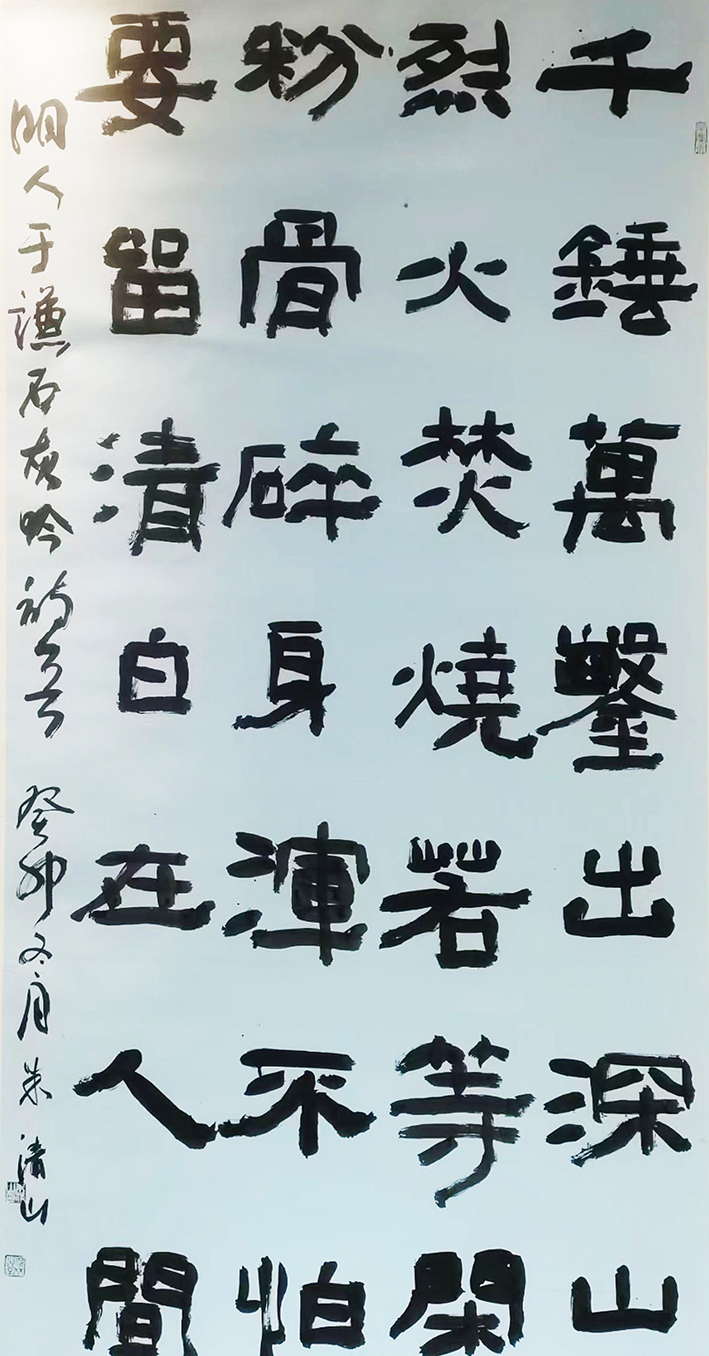 千錘萬鑿出深山
烈火焚燒若等閑
粉骨碎身渾不怕
要留清白在人間
明人于謙石灰吟詩意
癸卯冬月朱清山